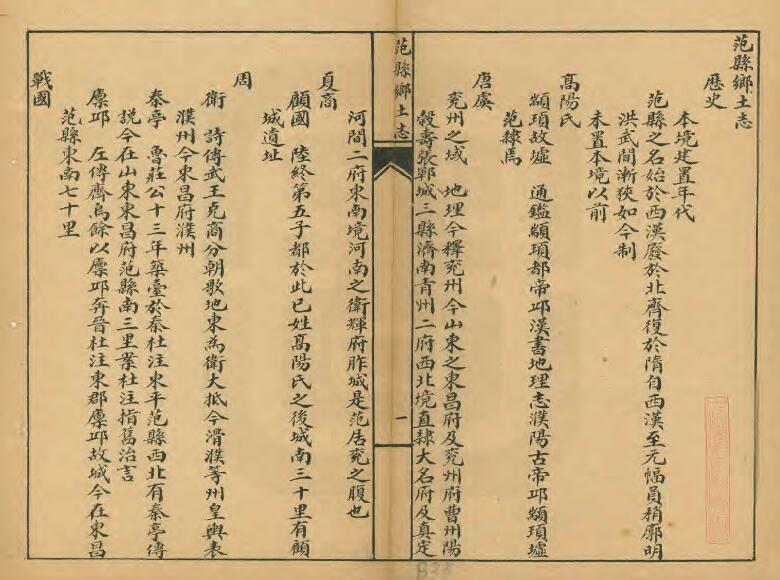 范縣鄉土志
歷史
本境建置年代
范縣之名始於西漢廢於北齊復於隋自西漢至元幅員稍廓明
洪武間漸狹如今制
未置本境以前
高陽氏
顓頊故墟　通鑑顓頊都帝邱漢書地理志濮陽古帝邱顓頊墟
范隸焉
唐虞
兖州之域　地理今釋兖州今山東之東昌府及兖州府曹州陽
穀壽張鄆城三縣濟南青州二府西北境直隸大名府及真定
范縣鄉土志
一
河間二府東南境河南之衛輝府胙城是范居兖之腹也
夏商
顧國　陸終第五子都於此已姓高陽氏之後城南三十里有顧
城遺址
周
衛　詩傳武王克商分朝歌地東為衛大抵今滑濮等州皇輿表
濮州今東昌府濮州
秦亭　魯莊公十三年築臺於秦杜注東平范縣西北有秦亭傳
說今在山東東昌府范縣南三里案杜注指舊治言
廩邱　左傳齊烏餘以廩邱奔晉杜注東郡廩邱故城今在東昌
范縣東南七十里
戰國